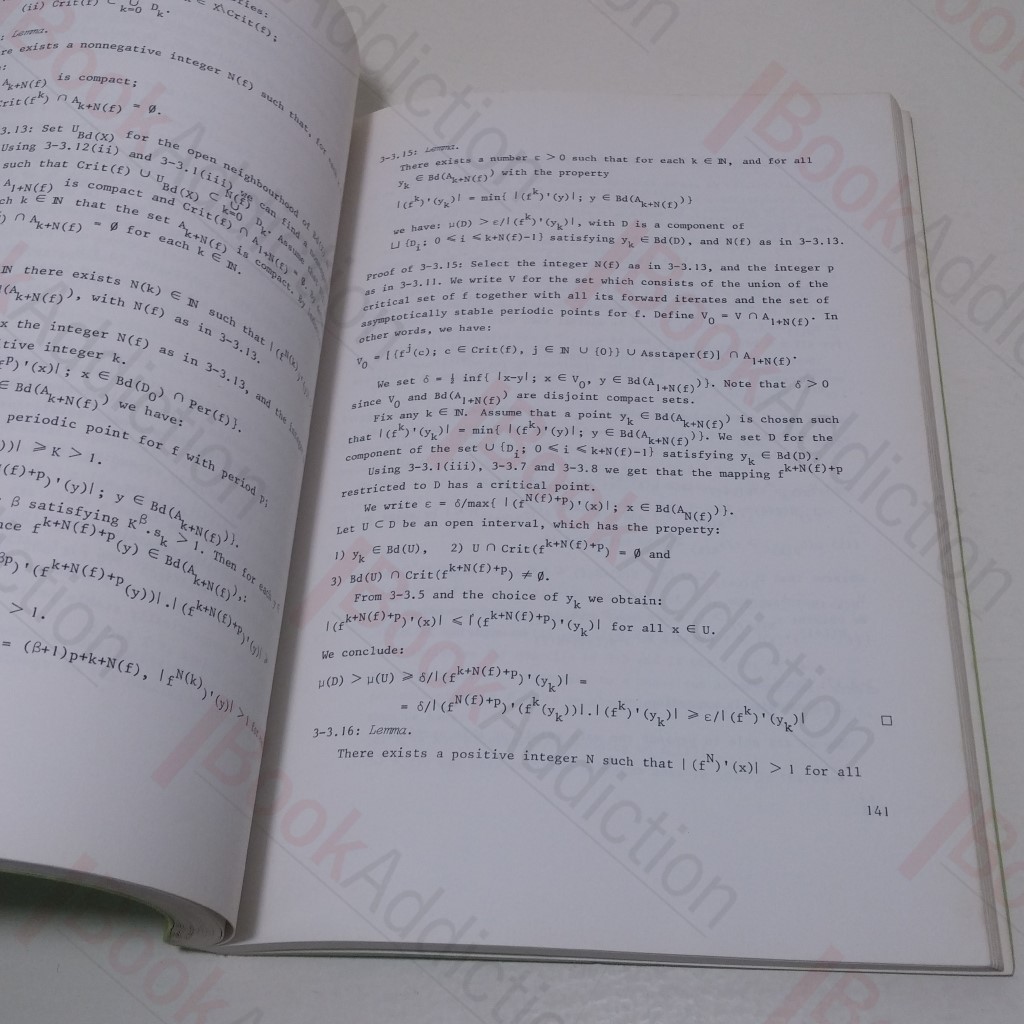 (ii) Crit(f) ⊂ ∪ D_k.
k=0
∈ X\Crit(f);
: Lemma.
re exists a nonnegative integer N(f) such that, for
A_{k+N(f)} is compact;
rit(f^k) ∩ A_{k+N(f)} = ∅.
3.13: Set U_{Bd(X)} for the open neighbourhood of
Using 3-3.12(ii) and 3-3.1(iii) we can find a
such that Crit(f) ∪ U_{Bd(X)} ⊂ ∪_{k=0}^{N(f)} D_k. Assume
A_{1+N(f)} is compact and Crit(f) ∩ A_{1+N(f)} = ∅.
ch k ∈ ℕ that the set A_{k+N(f)} is compact. By
) ∩ A_{k+N(f)} = ∅ for each k ∈ ℕ.
ℕ there exists N(k) ∈ ℕ such that |(f^{N(k)})'
(A_{k+N(f)}), with N(f) as in 3-3.13.
x the integer N(f) as in 3-3.13, and the
tive integer k.
f^p)'(x)|; x ∈ Bd(D_0) ∩ Per(f)}.
∈ Bd(A_{k+N(f)}) we have:
periodic point for f with period p;
))| ⩾ K > 1.
(f)+p)'(y)|; y ∈ Bd(A_{k+N(f)})}.
β satisfying K^β.s_k > 1. Then for each
nce f^{k+N(f)+p}(y) ∈ Bd(A_{k+N(f)}),:
βp)'(f^{k+N(f)+p}(y))|.|(f^{k+N(f)+p})'(y)|
> 1.
= (β+1)p+k+N(f), |f^{N(k)})'(y)| > 1
3-3.15: Lemma.
There exists a number ε > 0 such that for each k ∈ ℕ, and for all
y_k ∈ Bd(A_{k+N(f)}) with the property
|(f^k)'(y_k)| = min{ |(f^k)'(y)|; y ∈ Bd(A_{k+N(f)})}
we have: μ(D) > ε/|(f^k)'(y_k)|, with D is a component of
∪ {D_i; 0 ⩽ i ⩽ k+N(f)-1} satisfying y_k ∈ Bd(D), and N(f) as in 3-3.13.
Proof of 3-3.15: Select the integer N(f) as in 3-3.13, and the integer p
as in 3-3.11. We write V for the set which consists of the union of the
critical set of f together with all its forward iterates and the set of
asymptotically stable periodic points for f. Define V_0 = V ∩ A_{1+N(f)}. In
other words, we have:
V_0 = [{f^j(c); c ∈ Crit(f), j ∈ ℕ ∪ {0}} ∪ Asstaper(f)] ∩ A_{1+N(f)}.
We set δ = ½ inf{ |x-y|; x ∈ V_0, y ∈ Bd(A_{1+N(f)})}. Note that δ > 0
since V_0 and Bd(A_{1+N(f)}) are disjoint compact sets.
Fix any k ∈ ℕ. Assume that a point y_k ∈ Bd(A_{k+N(f)}) is chosen such
that |(f^k)'(y_k)| = min{ |(f^k)'(y)|; y ∈ Bd(A_{k+N(f)})}. We set D for the
component of the set ∪ {D_i; 0 ⩽ i ⩽ k+N(f)-1} satisfying y_k ∈ Bd(D).
Using 3-3.1(iii), 3-3.7 and 3-3.8 we get that the mapping f^{k+N(f)+p}
restricted to D has a critical point.
We write ε = δ/max{ |(f^{N(f)+p})'(x)|; x ∈ Bd(A_{N(f)})}.
Let U ⊂ D be an open interval, which has the property:
1) y_k ∈ Bd(U), 2) U ∩ Crit(f^{k+N(f)+p}) = ∅ and
3) Bd(U) ∩ Crit(f^{k+N(f)+p}) ≠ ∅.
From 3-3.5 and the choice of y_k we obtain:
|(f^{k+N(f)+p})'(x)| ⩽ |(f^{k+N(f)+p})'(y_k)| for all x ∈ U.
We conclude:
μ(D) > μ(U) ⩾ δ/|(f^{k+N(f)+p})'(y_k)| =
= δ/|(f^{N(f)+p})'(f^k(y_k))|.|(f^k)'(y_k)| ⩾ ε/|(f^k)'(y_k)| □
3-3.16: Lemma.
There exists a positive integer N such that |(f^N)'(x)| > 1 for all
141
BookAddiction